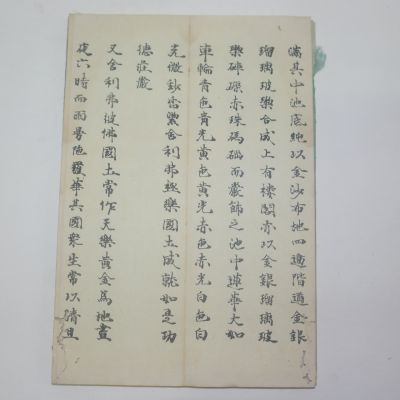 滿其中池底純以金沙布地四邊階道金銀
瑠璃玻瓈合成上有樓閣亦以金銀瑠璃玻
瓈硨磲赤珠碼碯而嚴飾之池中蓮華大如
車輪青色青光黃色黃光赤色赤光白色白
光微妙香潔舍利弗極樂國土成就如是功
德莊嚴
又舍利弗彼佛國土常作天樂黃金為地晝
夜六時而雨曼陀羅華其國衆生常以清旦